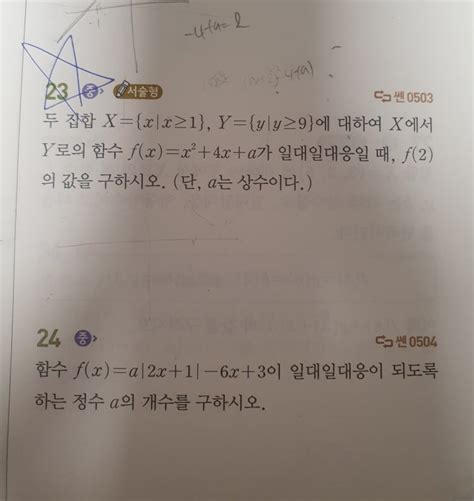 -4+a=2
23 중 서술형 쎈 0503
두 집합 X={x|x≥1}, Y={y|y≥9}에 대하여 X에서
Y로의 함수 f(x)=x²+4x+a가 일대일대응일 때, f(2)
의 값을 구하시오. (단, a는 상수이다.)
24 중 쎈 0504
함수 f(x)=a|2x+1|-6x+3이 일대일대응이 되도록
하는 정수 a의 개수를 구하시오.